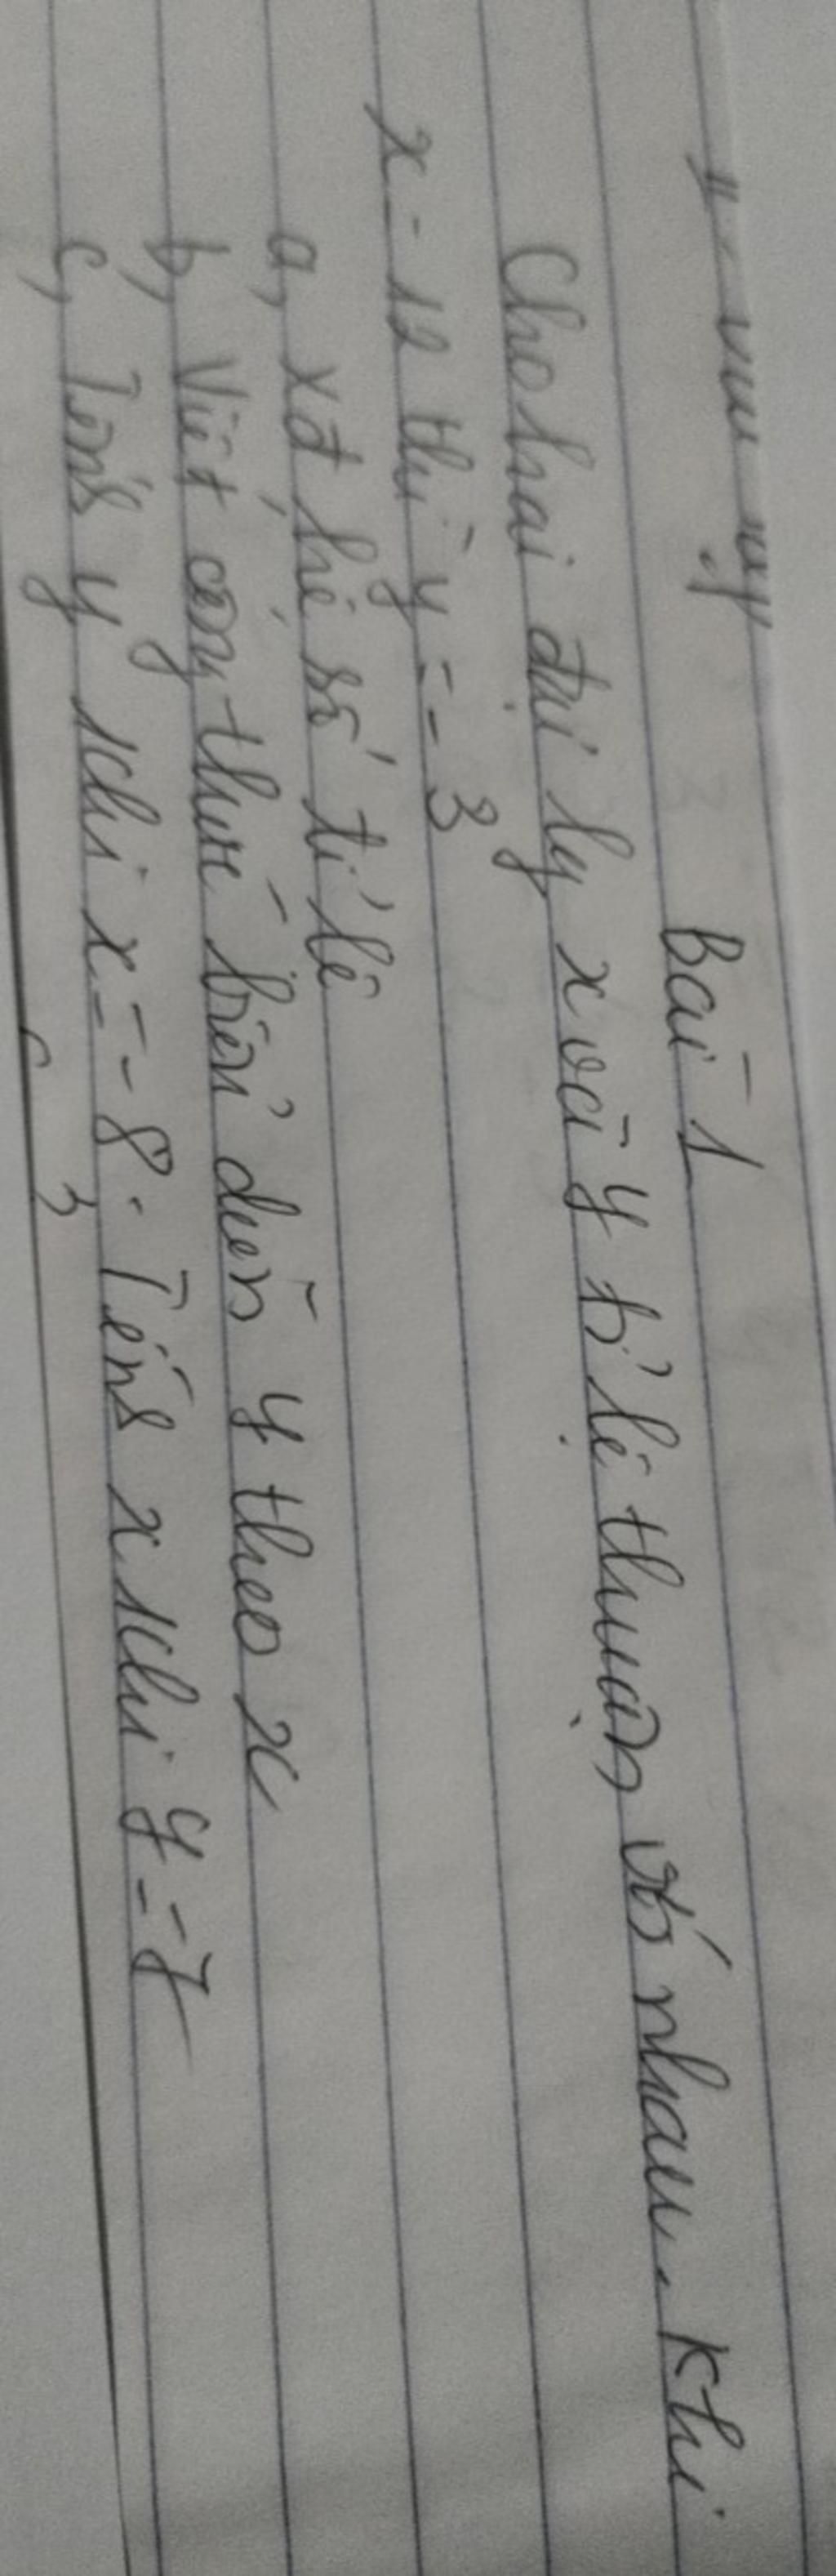 Bài 1
Cho hai đại lý x và y tỉ lệ thuận với nhau. Khi
x = 12 thì y = - 3
a, xđ hệ số tỉ lệ
b, Viết công thức biểu diễn y theo x
c, Tính y khi x = - 8. Tính x khi y = 7